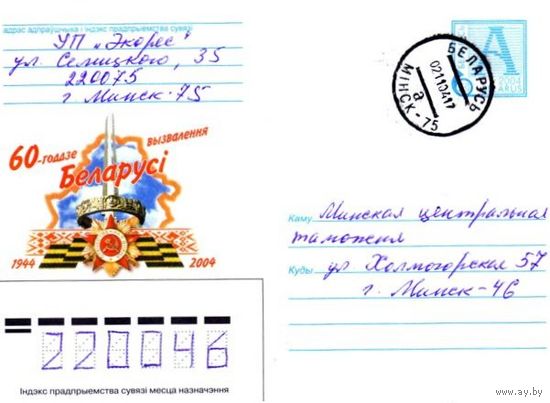 адрас адпраўшчыка і індэкс прадпрыемства сувязі
УП „Экорес"
ул. Селицкого, 35
220075
г. Минск-75
60-годдзе
вызвалення
Беларусі
1944
2004
А
2004
БЕЛАРУСЬ
021104 17
МІНСК - 75
а
Каму Минская центральная
таможня
Куды ул Холмогорская 57
г. Минск-46
220046
Індэкс прадпрыемства сувязі месца назначэння
www.ay.by